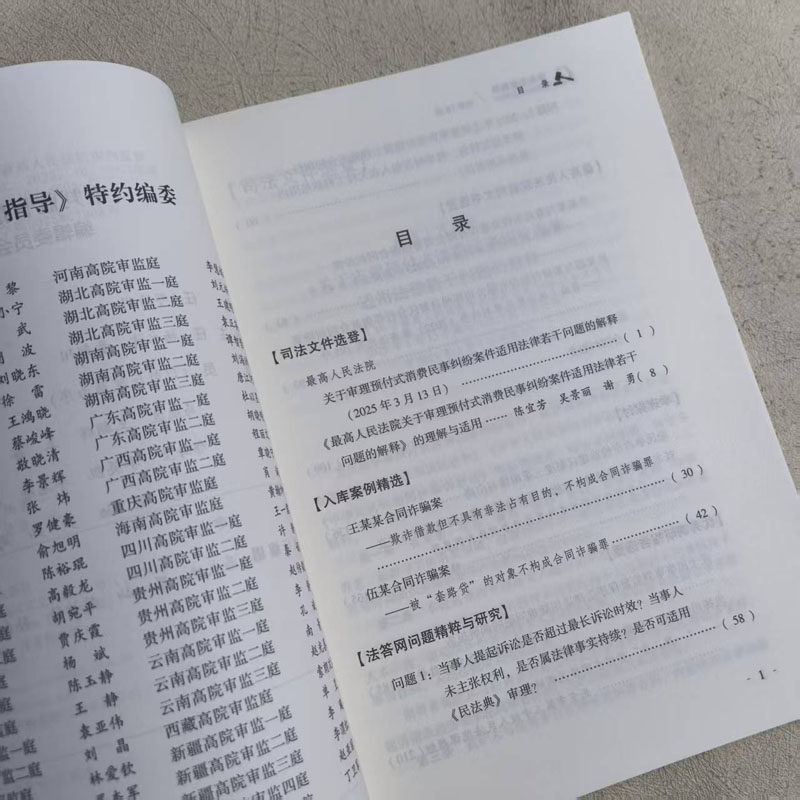 指导》 特约编委
黎 河南高院审监庭
小宁 湖北高院审监一庭
武 湖北高院审监二庭
波 湖北高院审监三庭
刘晓东 湖南高院审监一庭
徐雷 湖南高院审监二庭
王鸿晓 湖南高院审监三庭
蔡峻峰 广东高院审监一庭
敖晓清 广东高院审监二庭
李景辉 广西高院审监一庭
张炜 广西高院审监二庭
罗健豪 重庆高院审监庭
俞旭明 海南高院审监二庭
陈裕琨 四川高院审监一庭
高毅龙 四川高院审监二庭
胡宛平 贵州高院审监一庭
贾庆霞 贵州高院审监二庭
杨斌 贵州高院审监三庭
陈玉静 云南高院审监一庭
王静 云南高院审监二庭
袁亚伟 云南高院审监三庭
刘晶 西藏高院审监一庭
林爱钦 新疆高院审监一庭
新疆高院审监二庭
新疆高院审监三庭
目 录
目 录
【司法文件选登】
最高人民法院
关于审理预付式消费民事纠纷案件适用法律若干问题的解释
(2025年3月13日) ……………………………………( 1 )
《最高人民法院关于审理预付式消费民事纠纷案件适用法律若干
问题的解释》的理解与适用 …… 陈宜芳 吴景丽 谢 勇( 8 )
【入库案例精选】
王某某合同诈骗案
——欺诈借款但不具有非法占有目的，不构成合同诈骗罪
……………………………………( 30 )
伍某合同诈骗案
——被“套路贷”的对象不构成合同诈骗罪 ……………( 42 )
【法答网问题精粹与研究】
问题1：当事人提起诉讼是否超过最长诉讼时效？当事人
未主张权利，是否属法律事实持续？是否可适用
《民法典》审理？ ……………………………………( 58 )
- 1 -